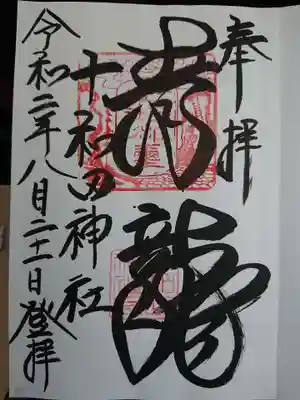 奉拝
青龍
十和田神社
令和二年八月二十一日登拝